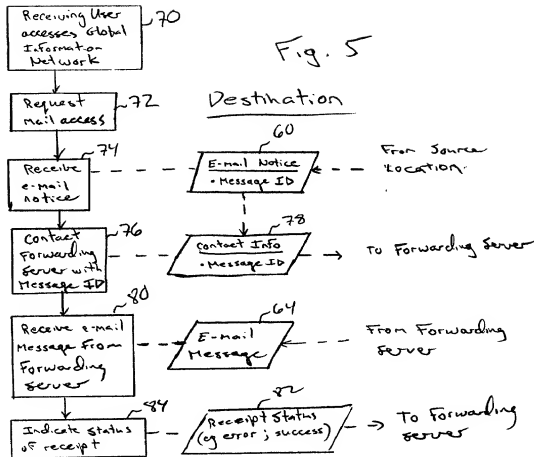 Receiving User
accesses Global
Information
Network
70
Fig. 5
Request
Mail access
72
Destination
Receive
e-mail
notice
74
E-mail Notice
• Message ID
60
From Source
Location
Contact
Forwarding
Server with
Message ID
76
Contact Info
• Message ID
78
To Forwarding Server
Receive e-mail
Message From
Forwarding
Server
80
E-Mail
Message
64
From Forwarding
Server
Indicate Status
of receipt
84
Receipt Status
(eg error; success)
82
To Forwarding
Server